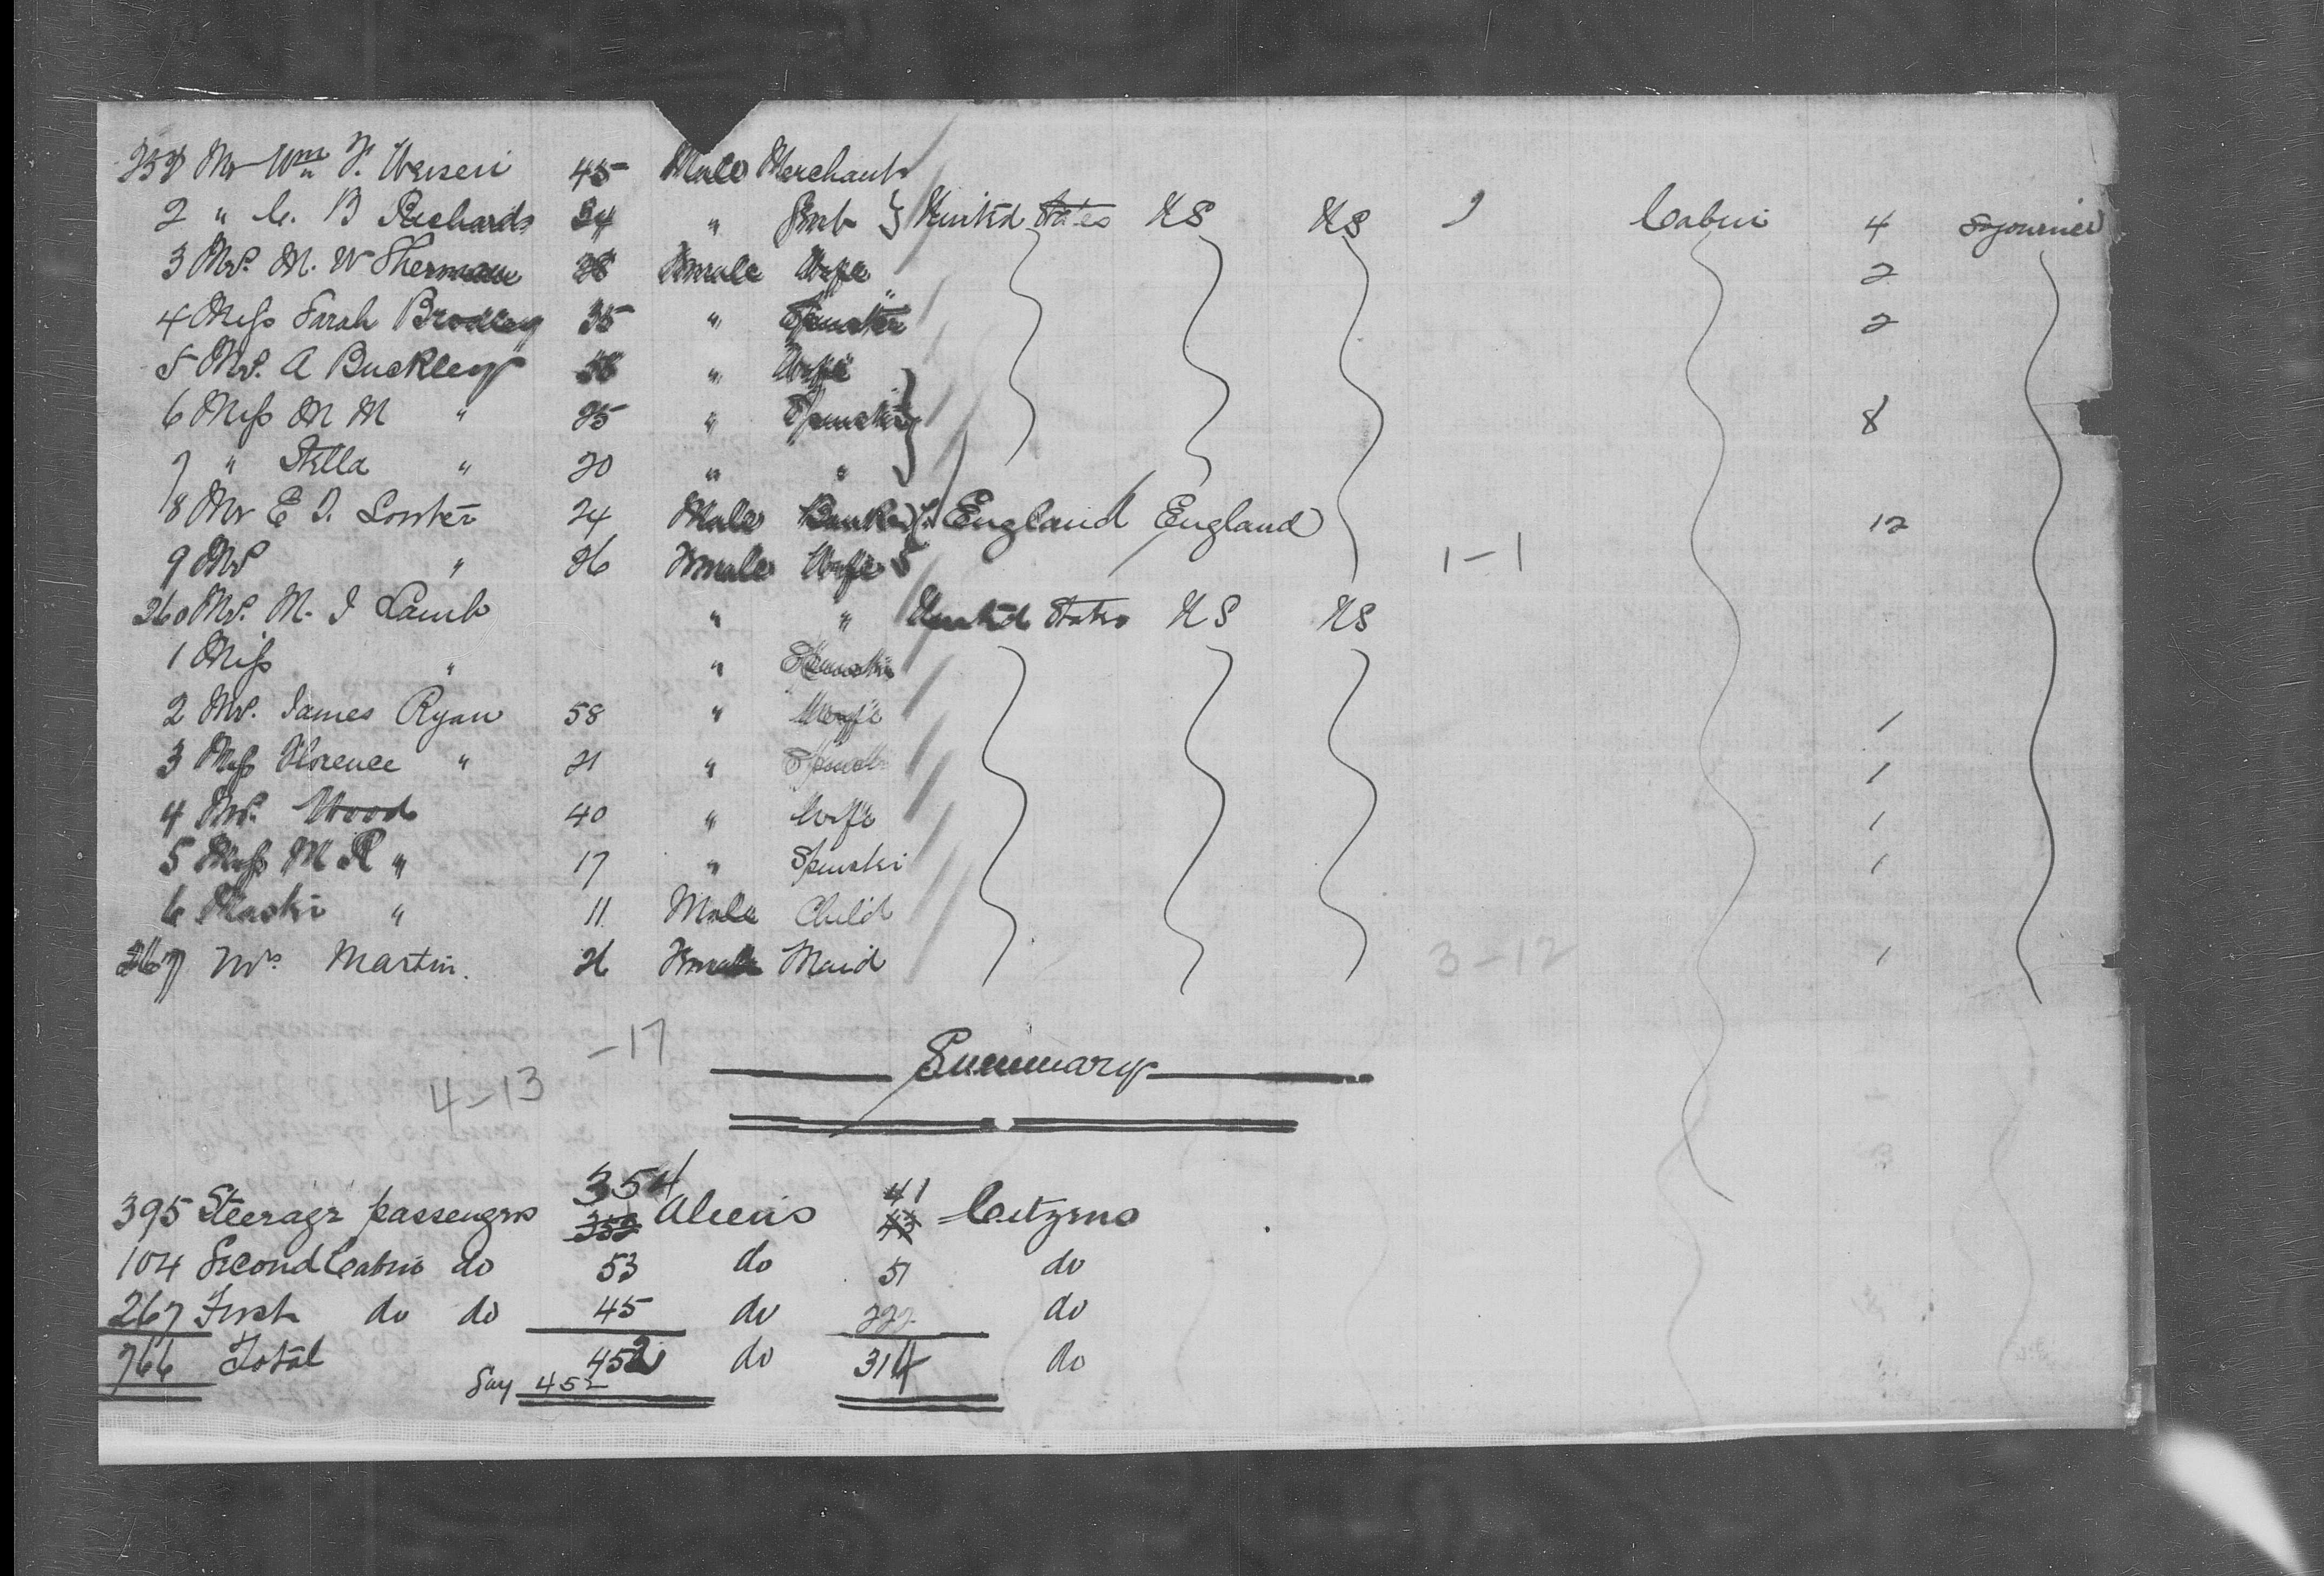 251 Mr Wm F. 45 Male Merchant
2 " C. B Richards 34 " Gent } United States US US Cabin 4 Sojourner
3 Mrs. M. W Sherman 28 Female Wife 2
4 Miss Sarah Brodley 35 " Spinster 2
5 Mrs. A Buckley 58 " Wife
6 Miss M M " 25 " Spinster 8
7 " Stella " 20 " "
8 Mr E D. 24 Male Banker England England 12
9 Mrs " 26 Female Wife 1-1
260 Mrs. M. J Lamb " " United States US US
1 Miss " " Spinster
2 Mrs. James Ryan 58 " Wife 1
3 Miss Florence " 21 " Spinster 1
4 Mrs. Wood 40 " Wife 1
5 Miss M R " 17 " Spinster 1
6 Master " 11 Male Child
267 Mrs Martin. 26 Female Maid 3-12 1
-17
Summary
4-13
354 41
395 Steerage passengers 352 Aliens 43 Citzens
104 Second Cabin do 53 do 51 do
267 First do do 45 do 222 do
766 Total 452 do 314 do
Say 452